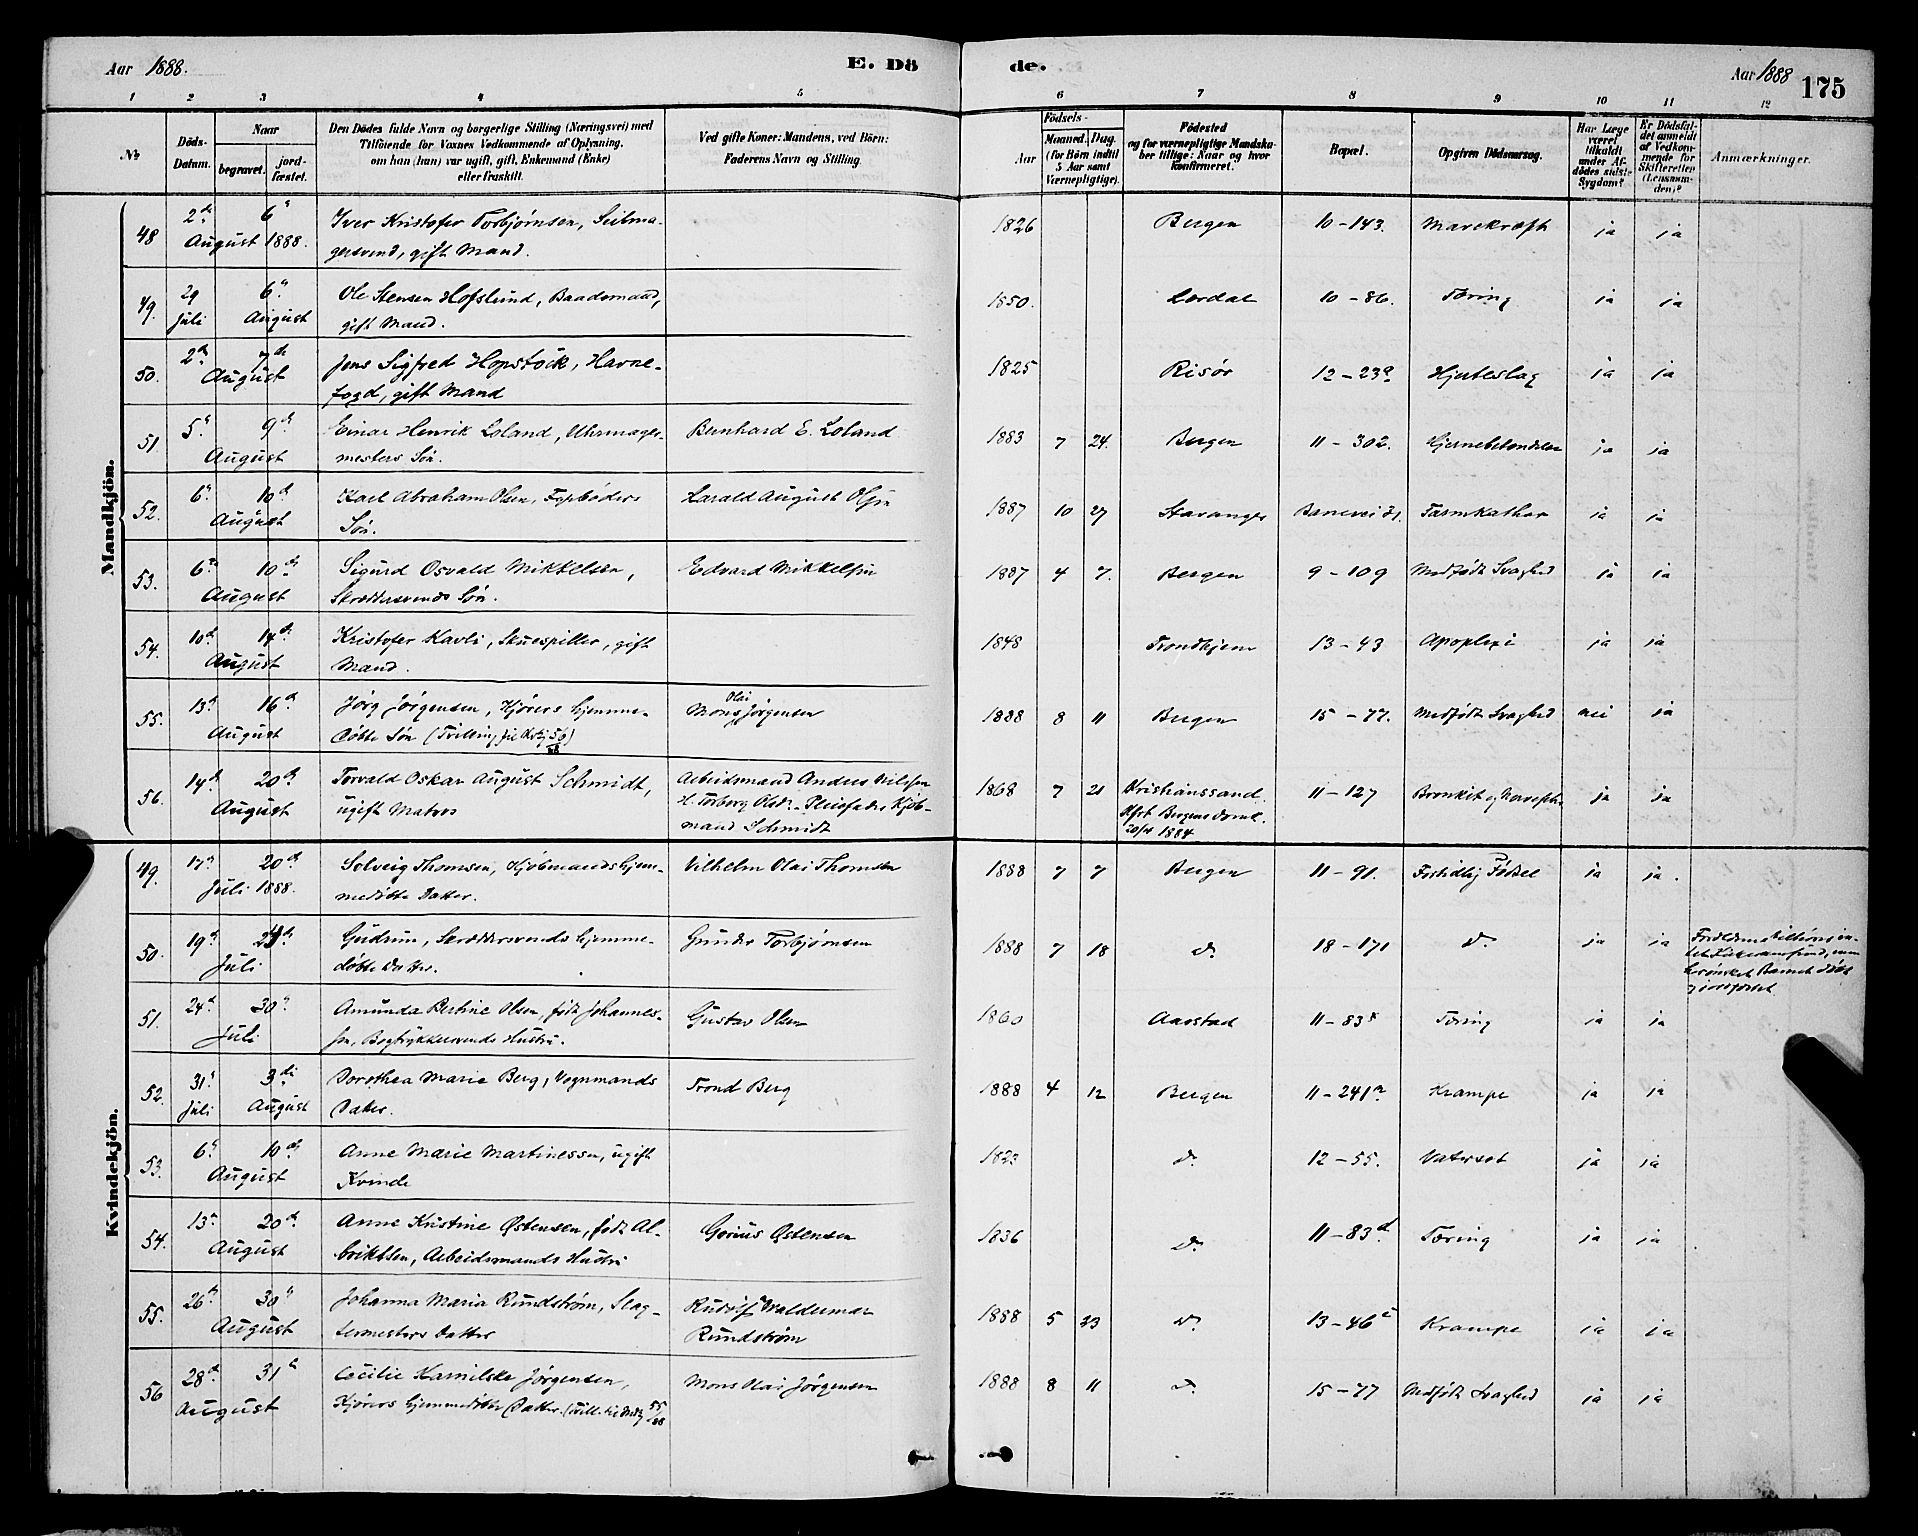 Aar 1888. E. Dö de. Aar 1888 175
1 2 3 4 5 6 7 8 9 10 11 12
No. Döds-Datum. Naar begravet. jordfæstet.
Den Dödes fulde Navn og borgerlige Stilling (Næringsvei) med
Tilföiende for Voxnes Vedkommende af Oplysning,
om han (hun) var ugift, gift, Enkemand (Enke)
eller fraskilt.
Ved gifte Koner: Mandens, ved Börn:
Faderens Navn og Stilling.
Födsels-
Aar Maaned. Dag.
(for Börn indtil
5 Aar samt
Værnepligtige).
Födested
og for værnepligtige Mandskaber tillige: Naar og hvor
konfirmeret.
Bopæl.
Opgiven Dödsaarsag.
Har Læge
været
tilkaldt
under Afdödes sidste
Sygdom?
Er Dödsfaldet anmeldt
af Vedkommende for
Skifteretten
(Lensmanden)?
Anmærkninger.
Mandkjön.
48 2den August 6te 1888. Iver Kristofer Torbjørnsen, Seilma-
gersvend, gift Mand. 1826 Bergen 10-143. Marekræft ja ja
49. 29 Juli 6te August Ole Stensen Hofslund, Baadsmand,
gift Mand. 1850. Lærdal 10-86. Tæring ja ja
50. 2den 7de August Jens Sigfred Hopstock, Havne-
fogd, gift Mand 1825 Risør 12-23a Hjerteslag ja ja
51. 5te 9de August Einar Henrik Loland, Uhrmager-
mesters Søn. Bernhard E. Loland 1883 7 24 Bergen 11-302. Hjernebetændelse ja ja
52. 6te 10de August Karl Abraham Olsen, Fyrbøders
Søn. Harald August Olsen 1887 10 27 Stavanger Tarmkathar ja ja
53. 6te 10de August Sigurd Osvald Mikkelsen,
Skræddersvends Søn. Edvard Mikkelsen 1887 4 7. Bergen 9-109 Medfødt Svaghed ja ja
54. 10de 14de August Kristofer Kavli, Skuespiller, gift
Mand. 1848 Trondhjem 13-43 Apoplexi ja ja
55. 13de 16de August Jørg Jørgensen, Kjørers hjemme-
døbte Søn (Tvilling til Kvkj 56/88) Mons Olai Jørgensen 1888 8 11 Bergen 15-77. Medfødt Svaghed nei ja
56. 14de 20de August Torvald Oskar August Schmidt,
ugift Matros Arbeidsmand Andreas Nilssen
Pleiefader Kjøb-
mand Schmidt 1868 7 21 Kristianssand.
Kfrt Bergens Domk.
1884 11-127 ja ja
Kvindekjön.
49. 17de 20de Juli 1888. Solveig Thomsen, Kjøbmands hjem-
medøbte Datter. Vilhelm Olai Thomsen 1888 7 7 Bergen 11-91. Fortidlig Fødsel ja ja.
50. 19de Juli Gudrun, Skræddersvends hjemme-
døbte Datter. Gunder Torbjørnsen 1888 7 18 do. 18-171 do. ja ja
51. 24de 30te Juli Amunda Bertine Olsen, født Johannes-
sen, Bogtrykkersvends Hustru. Gustav Olsen 1860 Aarstad 11-83 Tæring ja ja
52. 31te Juli 3die August Dorothea Marie Berg, Vognmands
Datter. Trond Berg 1888 4 12 Bergen 11-241a Krampe ja ja
53. 6te 10de August Anne Marie Martinessen, ugift
Kvinde 1823 do. 12-55. Vatersot ja ja
54. 13de 20de August Anne Kristine Østensen, født Al-
briktsen, Arbeidsmands Hustru Gorius Østensen 1836 do. 11-83d Tæring ja ja
55. 26de 30te August Johanna Maria Rundstrøm, Slag-
termesters Datter Rudolf Waldemar
Rundstrøm 1888 5 23 do. 13-46 Krampe ja ja
56 28de 31te August Cecilie Kamilske Jørgensen,
Kjørers hjemmedøbte Datter. 55/88 Mons Olai Jørgensen 1888 8 11 do. 15-77 Medfødt Svaghed ja ja